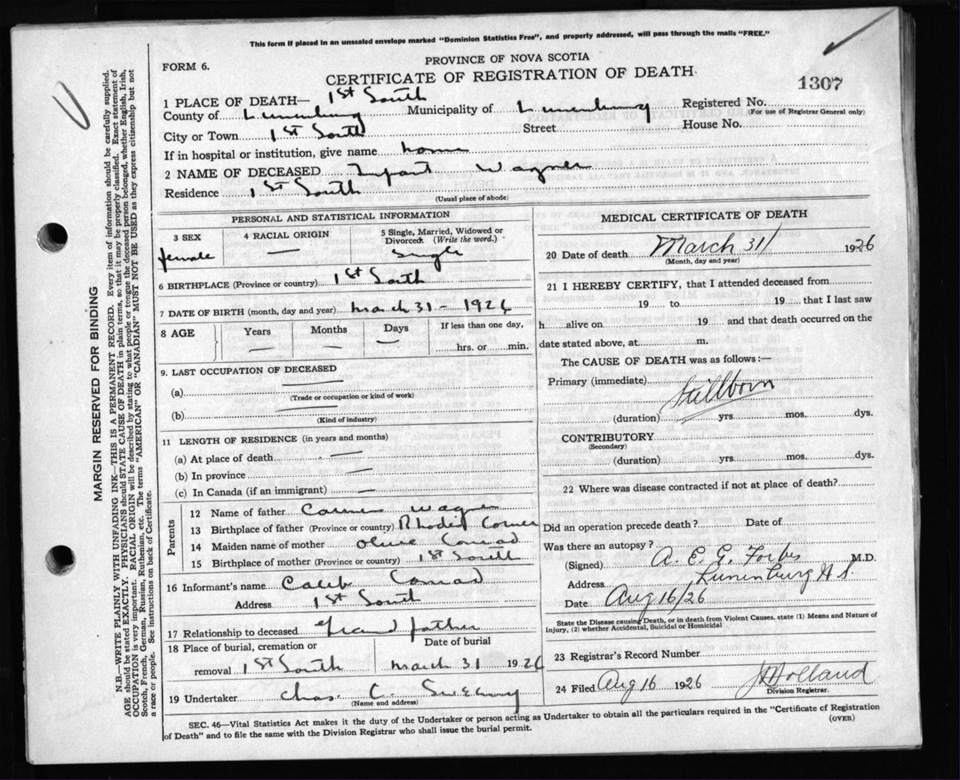 This form if placed in an unsealed envelope marked "Dominion Statistics Free", and properly addressed, will pass through the mails "FREE."
FORM 6.
PROVINCE OF NOVA SCOTIA
CERTIFICATE OF REGISTRATION OF DEATH
1307
1 PLACE OF DEATH— 1st South
County of Lunenburg Municipality of Lunenburg Registered No.
(For use of Registrar General only)
City or Town 1st South Street House No.
If in hospital or institution, give name home
2 NAME OF DECEASED Infant Wagner
Residence 1st South
(Usual place of abode)
PERSONAL AND STATISTICAL INFORMATION
3 SEX 4 RACIAL ORIGIN 5 Single, Married, Widowed or Divorced (Write the word.)
female — Single
6 BIRTHPLACE (Province or country) 1st South
7 DATE OF BIRTH (month, day and year) March 31 - 1926
8 AGE Years Months Days If less than one day,
— — — hrs. or min.
9. LAST OCCUPATION OF DECEASED
(a)
(Trade or occupation or kind of work)
(b)
(Kind of industry)
11 LENGTH OF RESIDENCE (in years and months)
(a) At place of death —
(b) In province —
(c) In Canada (if an immigrant) —
Parents
12 Name of father Wagner
13 Birthplace of father (Province or country) Rhodes Corner
14 Maiden name of mother Olive Conrad
15 Birthplace of mother (Province or country) 1st South
16 Informant's name Caleb Conrad
Address 1st South
17 Relationship to deceased Grand father
18 Place of burial, cremation or Date of burial
removal 1st South March 31 1926
19 Undertaker Chas. C. Sweeny
(Name and address)
MEDICAL CERTIFICATE OF DEATH
20 Date of death March 31 1926
(Month, day and year)
21 I HEREBY CERTIFY, that I attended deceased from
19 to 19 that I last saw
h alive on 19 and that death occurred on the
date stated above, at m.
The CAUSE OF DEATH was as follows:—
Primary (immediate) Stillborn
(duration) yrs. mos. dys.
CONTRIBUTORY
(Secondary)
(duration) yrs. mos. dys.
22 Where was disease contracted if not at place of death?
Did an operation precede death? Date of
Was there an autopsy?
(Signed) A. E. G. Forbes M.D.
Address Lunenburg N S
Date Aug 16/26
State the Disease causing Death, or in death from Violent Causes, state (1) Means and Nature of
Injury, (2) whether Accidental, Suicidal or Homicidal
23 Registrar's Record Number
24 Filed Aug 16 1926 Holland
Division Registrar
SEC. 46—Vital Statistics Act makes it the duty of the Undertaker or person acting as Undertaker to obtain all the particulars required in the "Certificate of Registration
of Death" and to file the same with the Division Registrar who shall issue the burial permit.
(OVER)
MARGIN RESERVED FOR BINDING
N.B.—WRITE PLAINLY WITH UNFADING INK—THIS IS A PERMANENT RECORD. Every item of information should be carefully supplied.
AGE should be stated EXACTLY. PHYSICIANS should STATE CAUSE OF DEATH in plain terms, so that it may be properly classified. Exact statement of
OCCUPATION is very important. RACIAL ORIGIN will be described by stating to what people or tongue the deceased person belonged, whether English, Irish,
Scotch, French, German, Russian, Ruthenian, etc. The terms "AMERICAN" OR "CANADIAN" MUST NOT BE USED as they express citizenship but not
a race or people. See instructions on back of Certificate.